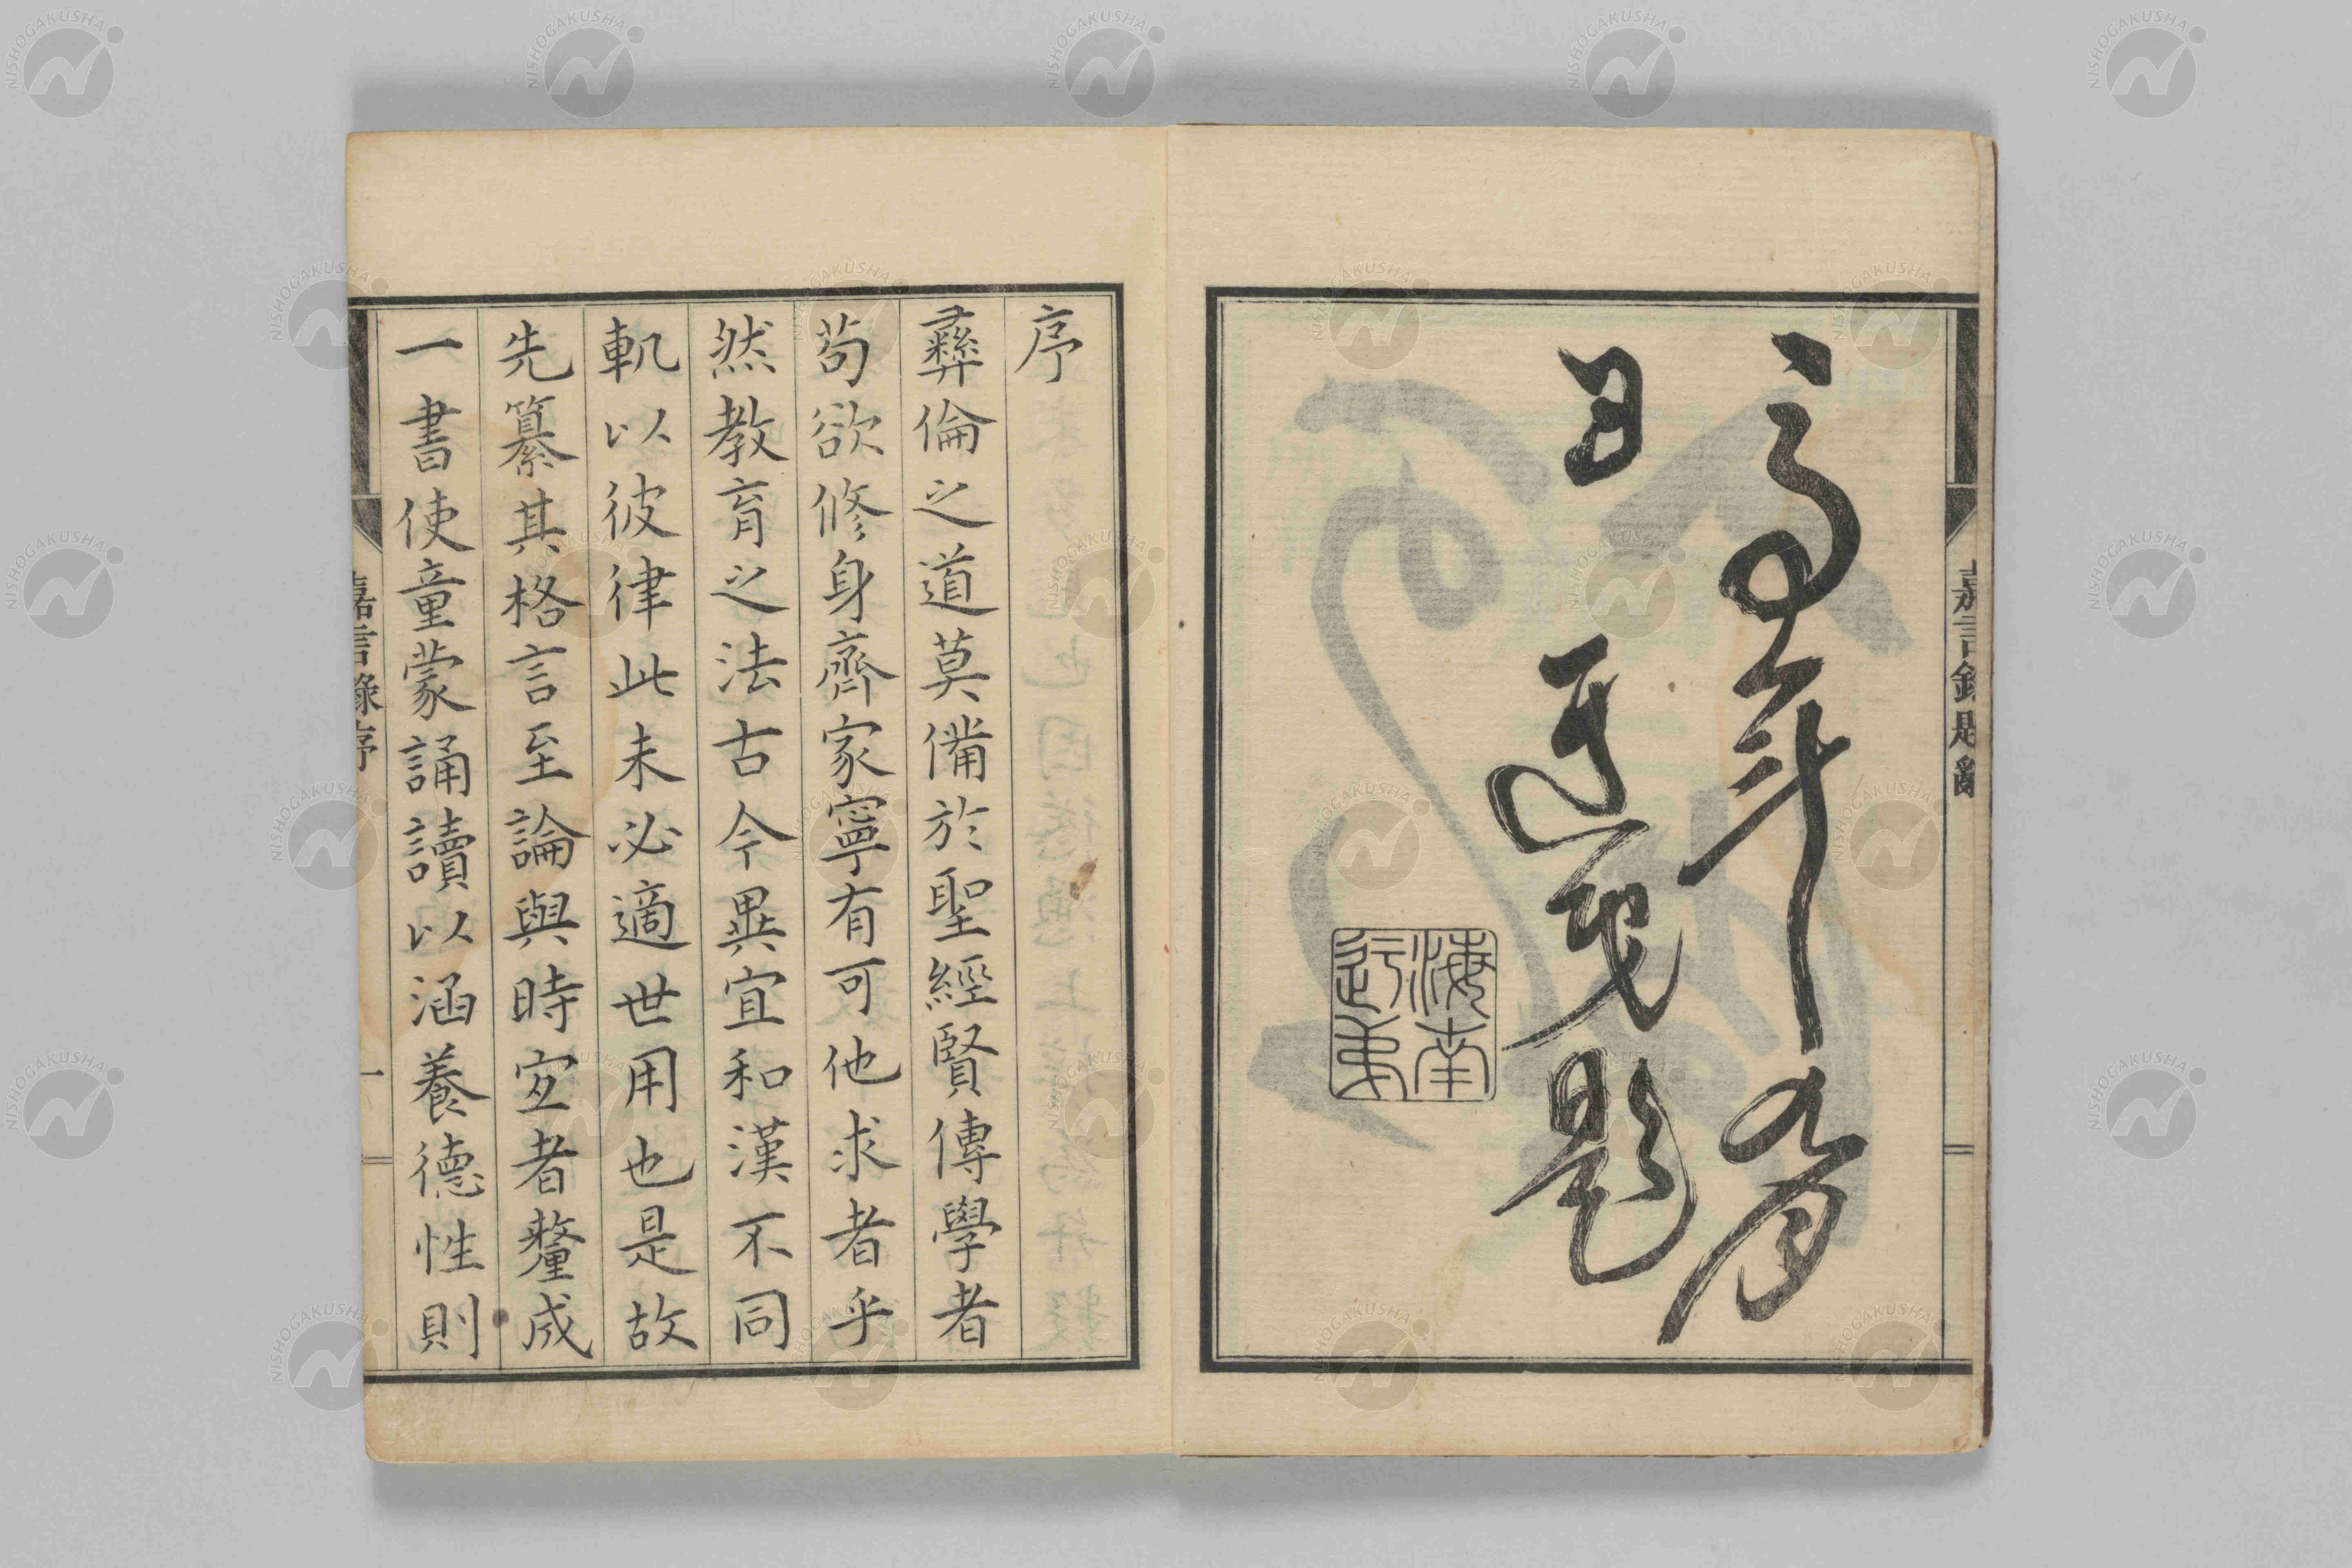 嘉言錄題辭
題
海南
行
序
彜倫之道莫備於聖經賢傳學者
苟欲修身齊家寧有可他求者乎
然教育之法古今異宜和漢不同
軌以彼律此未必適世用也是故
先纂其格言至論與時宜者釐成
一書使童蒙誦讀以涵養德性則
嘉言錄序
一
NISHOGAKUSHA